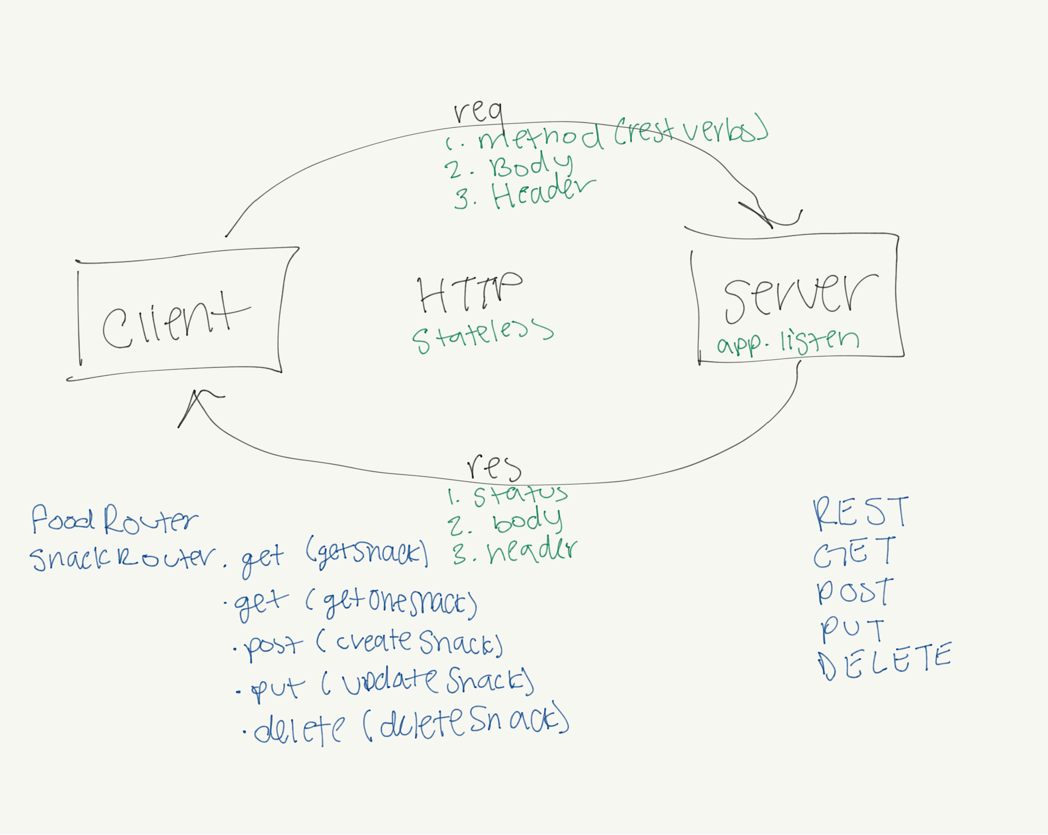 req
1. method (rest verbs)
2. Body
3. Header
client
HTTP
Stateless
server
app.listen
res
1. status
2. body
3. header
foodRouter
snackRouter.get (getsnack)
.get (getOneSnack)
.post (createSnack)
.put (updateSnack)
.delete (deleteSnack)
REST
GET
POST
PUT
DELETE